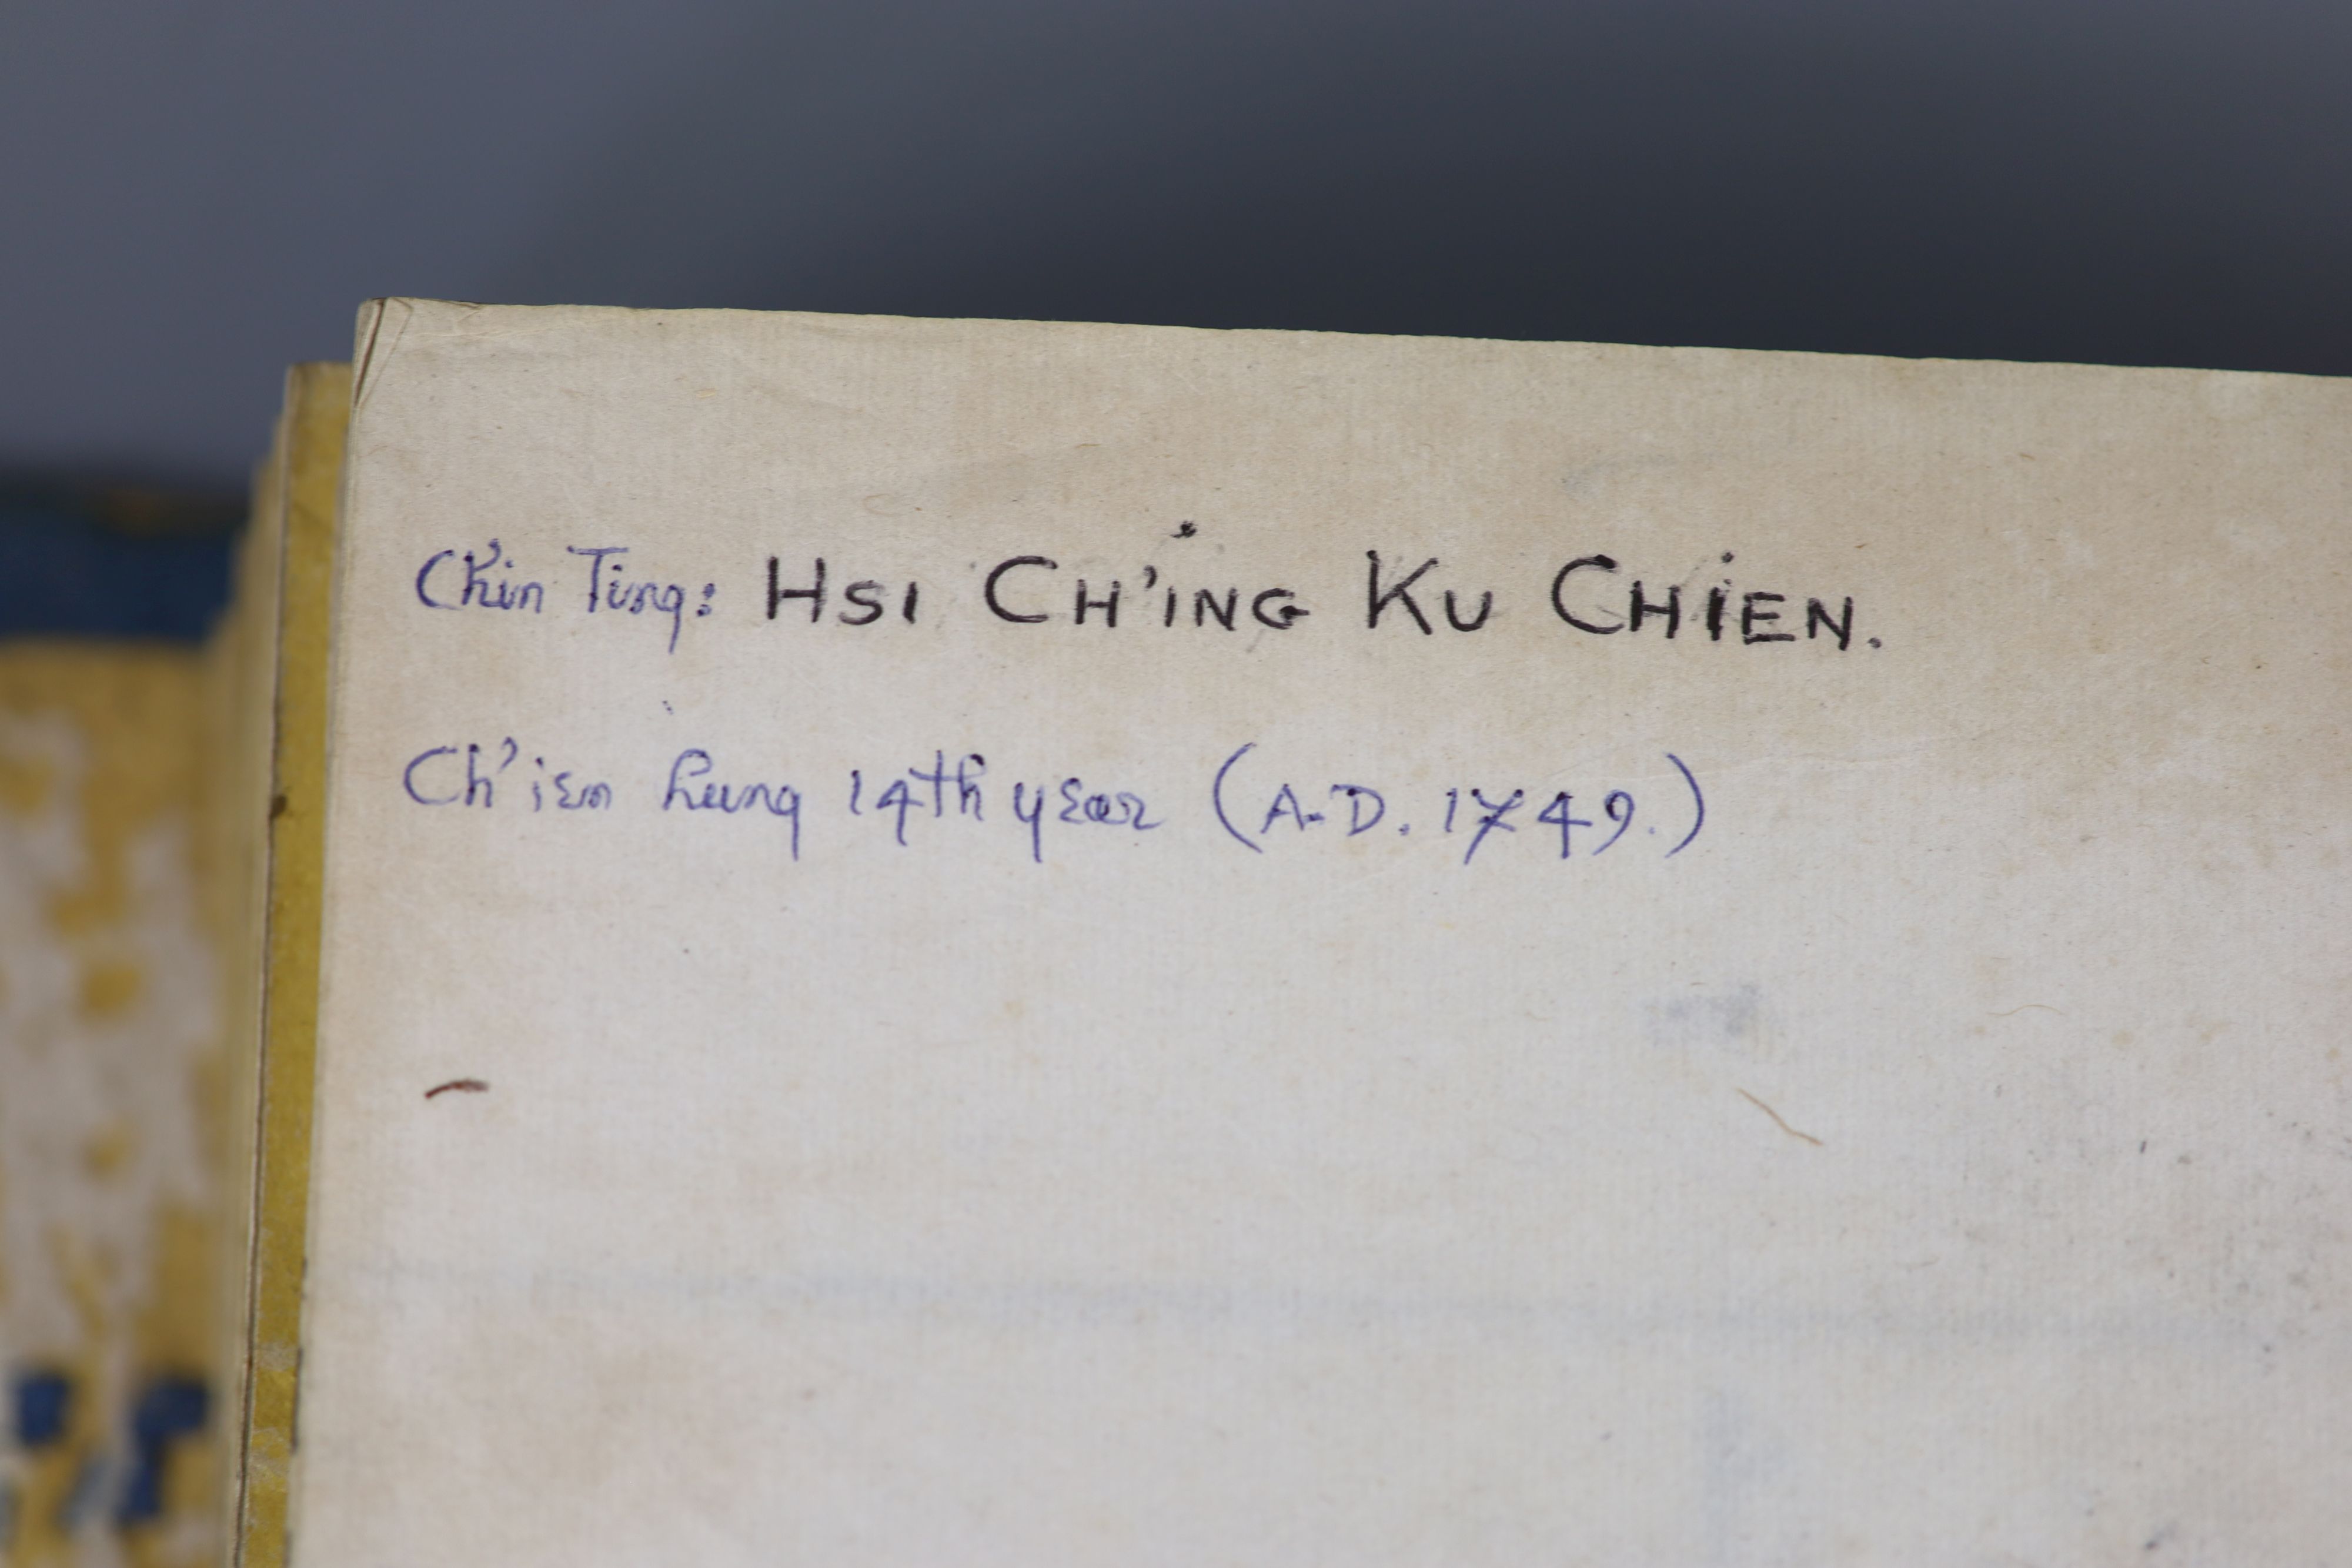 Ch'in Ting: HSI CH'ING KU CHIEN.
Ch'ien lung 14th year (A.D. 1749.)